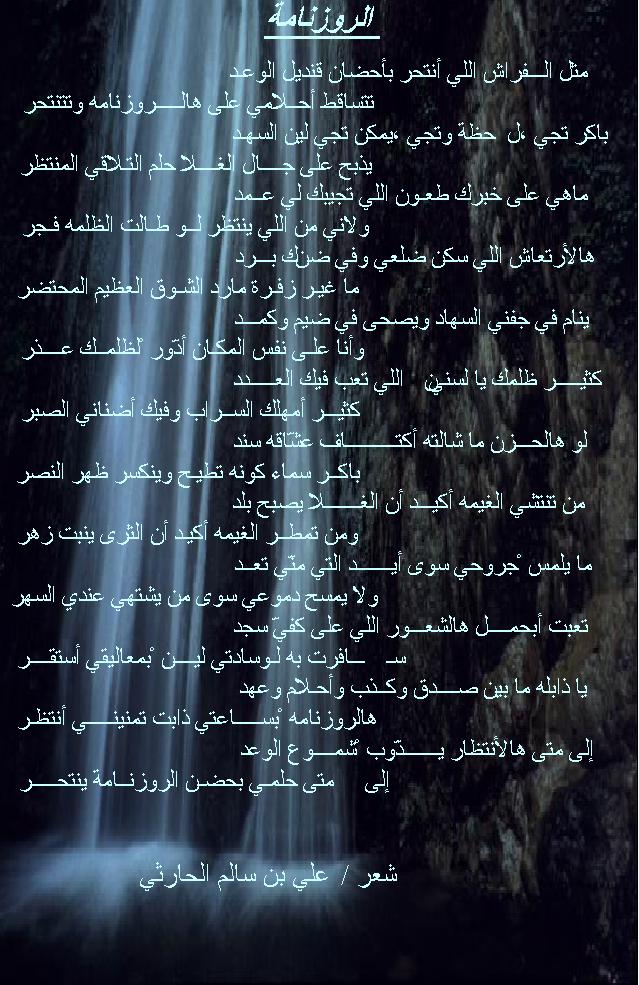 الروزنامة
مثل الفراش اللي أنتحر بأحضان قنديل الوعد
تتساقط أحلامي على هالروزنامه وتنتحر
باكر تجي ،ل حظة وتجي ،يمكن تجي لين السهد
يذبح على جال الغلا حلم التلاقي المنتظر
ماهي على خبرك طعون اللي تجيبك لي عمد
ولاني من اللي ينتظر لو طالت الظلمه فجر
هالأرتعاش اللي سكن ضلعي وفي ضنك برد
ما غير زفرة مارد الشوق العظيم المحتضر
ينام في جفني السهاد ويصحى في ضيم وكمد
وأنا على نفس المكان أدّور لْظلمك عذر
كثير ظلمك يا لسنين اللي تعب فيك العدد
كثير أمهلك السراب وفيك أضناني الصبر
لو هالحزن ما شالته أكتاف عشّاقه سند
باكر سماء كونه تطيح وينكسر ظهر النصر
من تنتشي الغيمه أكيد أن الغلا يصبح بلد
ومن تمطر الغيمه أكيد أن الثرى ينبت زهر
ما يلمس جْروحي سوى أيد التي منّي تعد
ولا يمسح دموعي سوى من يشتهي عندي السهر
تعبت أبحمل هالشعور اللي على كفيّ سجد
سافرت به لوسادتي لين بْمعاليقي أستقر
يا ذابله ما بين صدق وكذب وأحلام وعهد
هالروزنامه بْساعتي ذابت تمنيني أنتظر
إلى متى هالأنتظار يدّوب شْموع الوعد
إلى متى حلمي بحضن الروزنامة ينتحر
شعر / علي بن سالم الحارثي